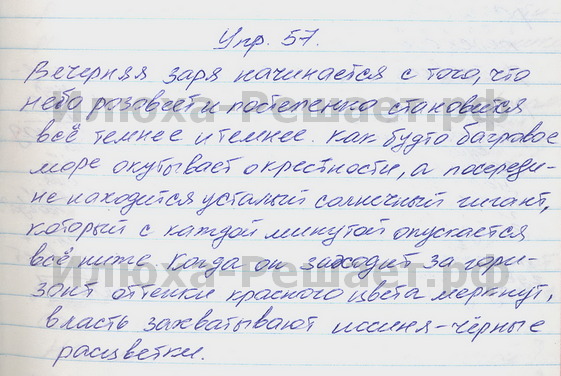 Упр. 57.
Вечерняя заря начинается с того, что
небо розовеет и постепенно становится
всё темнее и темнее. Как будто багровое
море окутывает окрестности, а посереди-
не находится усталый солнечный гигант,
который с каждой минутой опускается
всё ниже. Когда он заходит за гори-
зонт оттенки красного цвета меркнут,
власть захватывают иссиня-чёрные
расцветки.
Илюха-Решает.рф
Илюха-Решает.рф